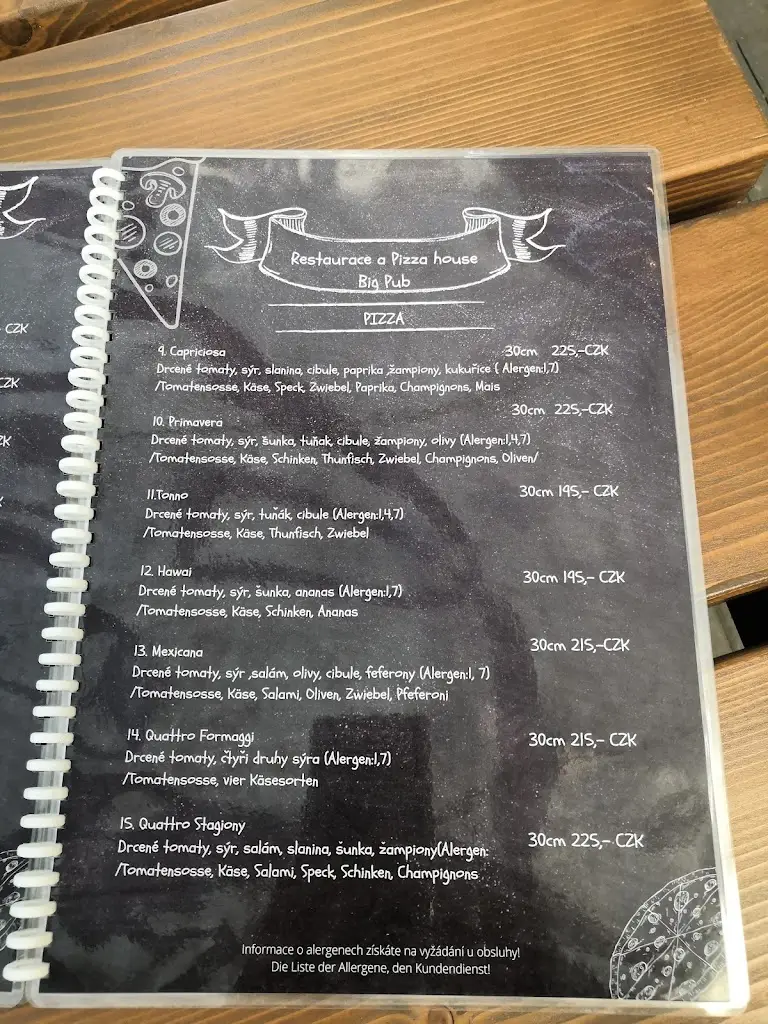 CZK
CZK
Restaurace a Pizza house
Big Pub
PIZZA
9. Capriciosa 30cm 225,-CZK
Drcené tomaty, sýr, slanina, cibule, paprika ,žampiony, kukuřice ( Alergen:1,7)
/Tomatensosse, Käse, Speck, Zwiebel, Paprika, Champignons, Mais
10. Primavera 30cm 225,-CZK
Drcené tomaty, sýr, šunka, tuňak, cibule, žampiony, olivy (Alergen:1,4,7)
/Tomatensosse, Käse, Schinken, Thunfisch, Zwiebel, Champignons, Oliven/
11.Tonno 30cm 195,- CZK
Drcené tomaty, sýr, tuňák, cibule (Alergen:1,4,7)
/Tomatensosse, Käse, Thunfisch, Zwiebel
12. Hawai 30cm 195,- CZK
Drcené tomaty, sýr, šunka, ananas (Alergen:1,7)
/Tomatensosse, Käse, Schinken, Ananas
13. Mexicana 30cm 215,-CZK
Drcené tomaty, sýr ,salám, olivy, cibule, feferony (Alergen:1, 7)
/Tomatensosse, Käse, Salami, Oliven, Zwiebel, Pfeferoni
14. Quattro Formaggi 30cm 215,- CZK
Drcené tomaty, čtyři druhy sýra (Alergen:1,7)
/Tomatensosse, vier Käsesorten
15. Quattro Stagiony 30cm 225,- CZK
Drcené tomaty, sýr, salám, slanina, šunka, žampiony(Alergen:
/Tomatensosse, Käse, Salami, Speck, Schinken, Champignons
Informace o alergenech získáte na vyžádání u obsluhy!
Die Liste der Allergene, den Kundendienst!